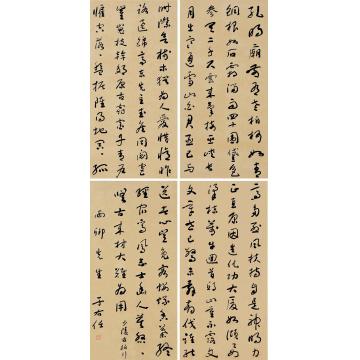 孔明廟前有老柏柯如青
銅根如石霜皮溜雨四十圍黛色
參天二千尺雲來氣接巫峽長
月出寒通雪山白君臣已與
時際會樹木猶為人愛惜憶昨
路遶錦亭東先主武侯同閟宮
崔嵬枝幹郊原古窈窕丹青戶
牖空落落盤踞雖得地冥冥孤
高多烈風扶持自是神明力
正直原因造化功大廈如傾要
梁棟萬牛迴首丘山重不露文
章世已驚未辭剪伐誰能
送苦心豈免容螻蟻香葉終
經宿鸞鳳志士幽人莫怨
嗟古來材大難為用
古柏行
先生 于右任